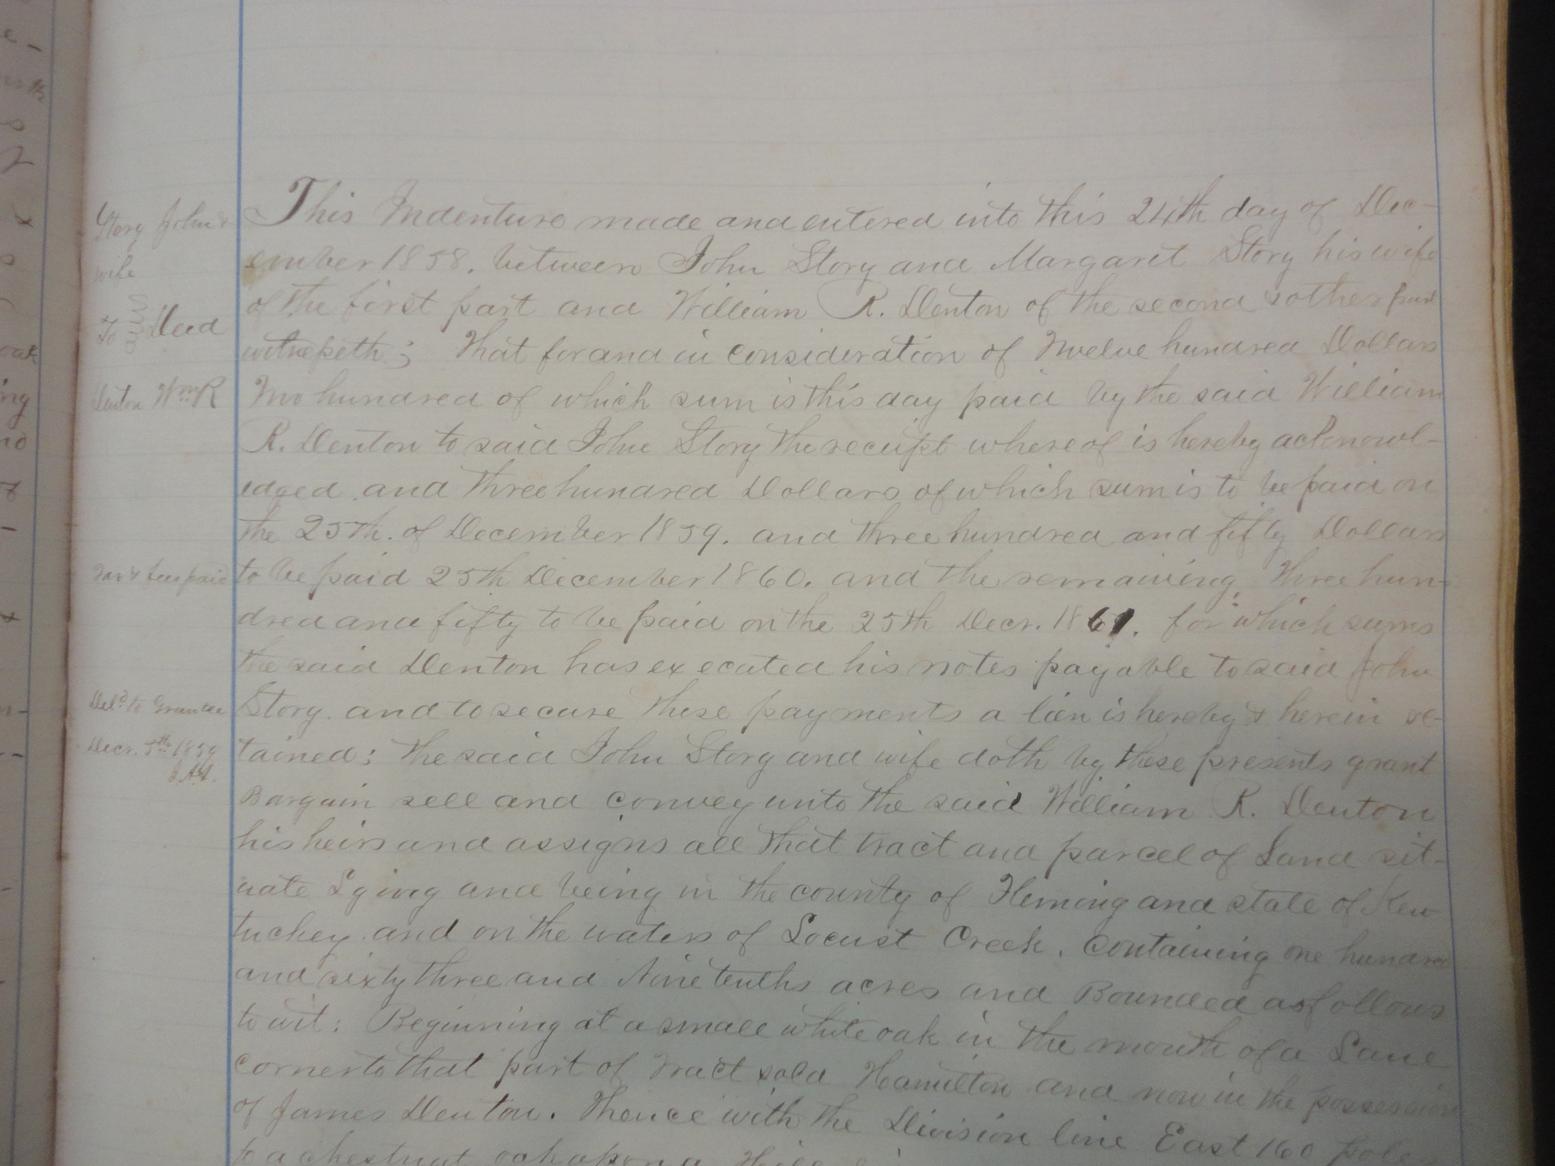 This Indenture made and entered into this 24th day of Dec-
ember 1858, between John Story and Margaret Story his wife
of the first part and William R. Denton of the second & other part
witnesseth; That for and in consideration of Twelve hundred Dollars
Two hundred of which sum is this day paid by the said William
R. Denton to said John Story the receipt whereof is hereby acknowl-
edged and three hundred Dollars of which sum is to be paid on
the 25th. of December 1859. and three hundred and fifty Dollars
to be paid 25th December 1860. and the remaining three hun-
dred and fifty to be paid on the 25th Decr. 1861. for which sums
the said Denton has executed his notes payable to said John
Story. and to secure these payments a lien is hereby & herein re-
tained: The said John Story and wife doth by these presents grant
Bargain sell and convey unto the said William R. Denton
his heirs and assigns all that tract and parcel of Land sit-
uate Lying and being in the county of Fleming and state of Ken
tuckey. and on the waters of Locust Creek, containing one hundred
and sixty three and Nine tenths acres and Bounded as follows
to wit: Beginning at a small white oak in the mouth of a Lane
corner to that part of tract sold Hamilton and now in the possession
of James Denton. Thence with the Division line East 160 poles
to a chestnut oak upon a Hill
Story John &
wife
To Deed
Denton Wm R
Tax & fees paid
Deld to Grantee
Decr. 5th 1859